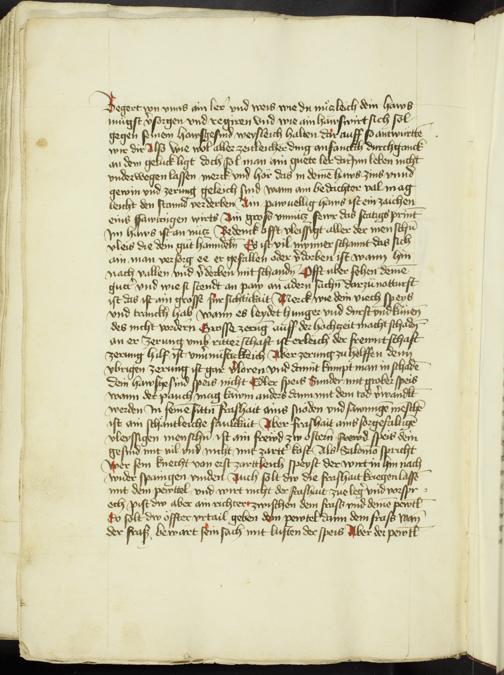 Begert von vnns ain ler vnd weis wie du nuczleich dein haws
mugst vsorgen vnd regiren vnd wie ain hauswirt sich sol
gegen seinem hawsgesind weysleich halten dar auff so antwurtte
wir dir Also wie wol aller zeitleicher ding anfanckch durchganck
an dem geluck ligt doch sol man ain guete ler dar Inn leben nicht
vnderwegen lassen merck vnd hör das in deine haws zins vnnd
gewin vnd zerung geleich sind wann ain bedachter val mag
leicht den stannd verderben Ain pawuellig haws ist ein zaichen
eins sawmigen wirts Ain gross vnnucz fewr das statigs print
Im haws ist an nucz Bedenck offt vleissigt aller der menschn
vleis die dein guet hanndeln Es ist vil mynner schannt das sich
ain man versorg ee er gefallen oder vdorben ist wann hin
nach vallen vnd vderben mit schandn Offt vber sehen deine
guet vnd wie si stendt an paw an adern sachn dar zu notturft
ist das ist ain grosse fursichtikait Merck wie dein viech speys
vnd tranckh hab wann es leydet hunger vnd durst vnd kunen
des nicht vordern Grosse zerug auff der hochczeit macht schaden
an er Zerung vmb ritterschaft ist erleich der frewntschaft
zerung hilf ist vernunfticleich Aber zerung zu helffen dem
vbrigen zerung ist gar vloren vnd damit kumpt man in schade
den hawsgesind speis nicht Edler speis Sunder mit grober speis
wann der pauch mag kawm anders dann mit dem tod vwandlt
werden In seine sittn frashait ains snoden vnd sawmige mensche
ist ain schantleiche fawlikait Aber frashait ains sorgfeltige
vleyssigen menschn ist ain frewd zu ostern frewd speis dem
gesind mit vil vnd nicht mit zartt kost Als Salomo spricht
Wer sein knecht von erst zarttleich speyst der wirt in hin nach
wider spannigen vinden Auch solt dw die frashait kriegen lasse
mit dem pewttel vnd wirt nicht der frashait zue leg vnd vorspr
ech pist dw aber ain richter zwischen dem frass vnd deine pewtl
So solt dw offter vrtail geben dem pewtel dann dem frass wan
der fras bewart sein sach mit lusten der speis Aber der pewtl